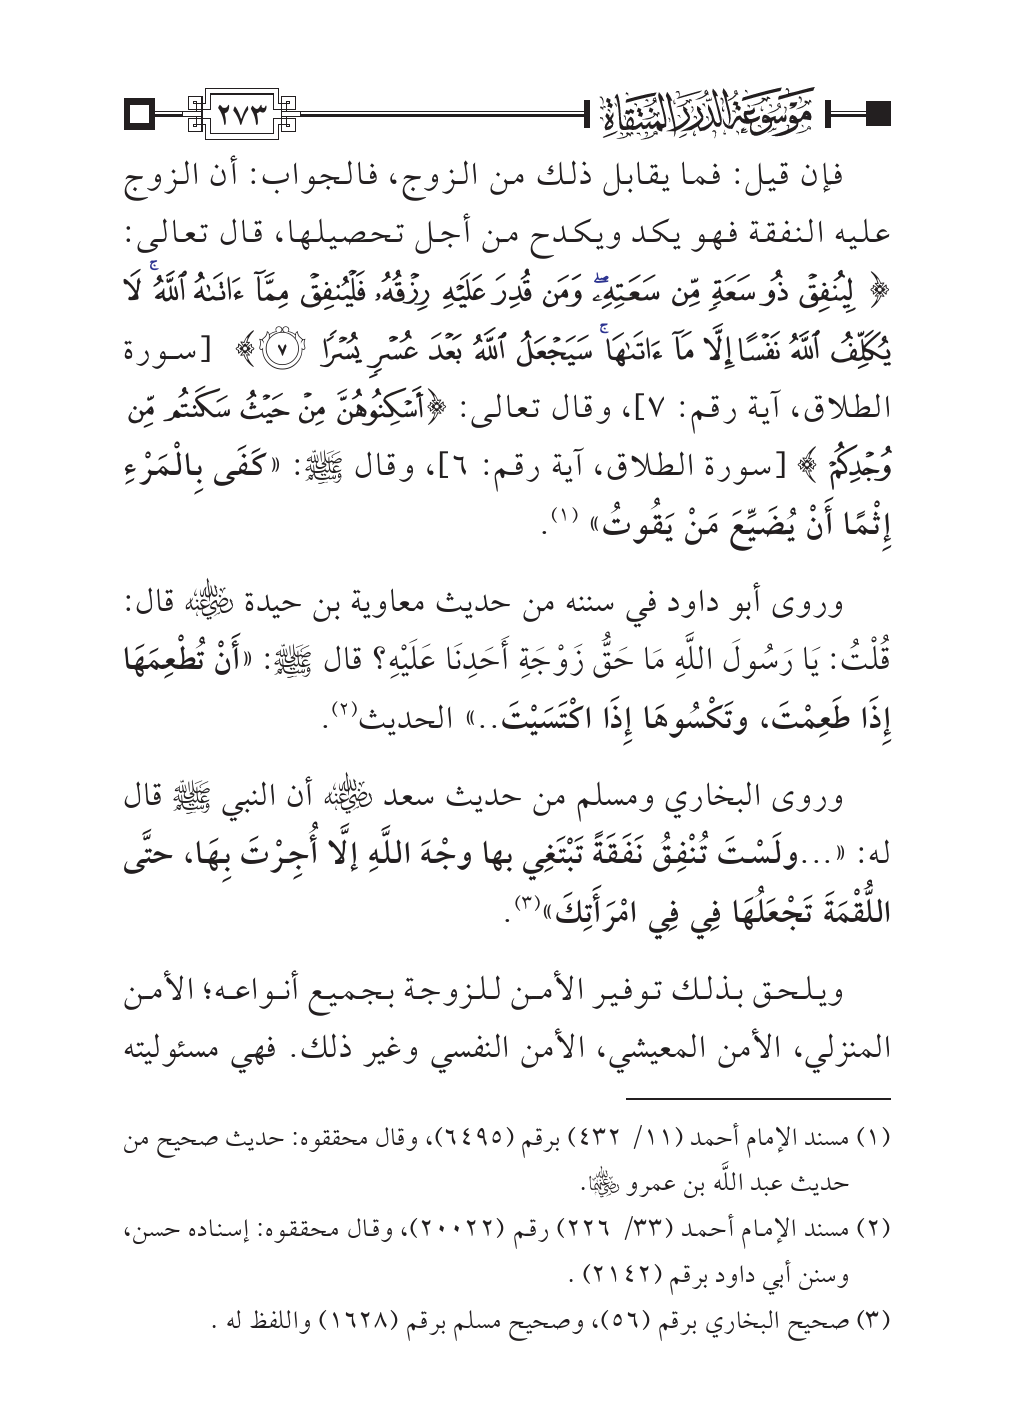 موسوعة الدرر المنتقاة
٢٧٣
فإن قيل: فما يقابل ذلك من الزوج، فالجواب: أن الزوج
عليه النفقة فهو يكد ويكدح من أجل تحصيلها، قال تعالى:
﴿ لِيُنفِقْ ذُو سَعَةٍ مِّن سَعَتِهِۦۖ وَمَن قُدِرَ عَلَيْهِ رِزْقُهُۥ فَلْيُنفِقْ مِمَّآ ءَاتَىٰهُ ٱللَّهُۚ لَا
يُكَلِّفُ ٱللَّهُ نَفْسًا إِلَّا مَآ ءَاتَىٰهَاۚ سَيَجْعَلُ ٱللَّهُ بَعْدَ عُسْرٍ يُسْرًا ٧ ﴾ [سورة
الطلاق، آية رقم: ٧]، وقال تعالى: ﴿أَسْكِنُوهُنَّ مِنْ حَيْثُ سَكَنتُم مِّن
وُجْدِكُمْ ﴾ [سورة الطلاق، آية رقم: ٦]، وقال ﷺ: «كَفَى بِالْمَرْءِ
إِثْمًا أَنْ يُضَيِّعَ مَنْ يَقُوتُ» (١).
وروى أبو داود في سننه من حديث معاوية بن حيدة رضي الله عنه قال:
قُلْتُ: يَا رَسُولَ اللَّهِ مَا حَقُّ زَوْجَةِ أَحَدِنَا عَلَيْهِ؟ قال ﷺ: «أَنْ تُطْعِمَهَا
إِذَا طَعِمْتَ، وتَكْسُوهَا إِذَا اكْتَسَيْتَ..» الحديث(٢).
وروى البخاري ومسلم من حديث سعد رضي الله عنه أن النبي ﷺ قال
له: «...ولَسْتَ تُنْفِقُ نَفَقَةً تَبْتَغِي بها وجْهَ اللَّهِ إلَّا أُجِرْتَ بِهَا، حتَّى
اللُّقْمَةَ تَجْعَلُهَا فِي فِي امْرَأَتِكَ»(٣).
ويلحق بذلك توفير الأمن للزوجة بجميع أنواعه؛ الأمن
المنزلي، الأمن المعيشي، الأمن النفسي وغير ذلك. فهي مسئوليته
(١) مسند الإمام أحمد (١١/ ٤٣٢) برقم (٦٤٩٥)، وقال محققوه: حديث صحيح من
حديث عبد اللَّه بن عمرو رضي الله عنهما.
(٢) مسند الإمام أحمد (٣٣/ ٢٢٦) رقم (٢٠٠٢٢)، وقال محققوه: إسناده حسن،
وسنن أبي داود برقم (٢١٤٢) .
(٣) صحيح البخاري برقم (٥٦)، وصحيح مسلم برقم (١٦٢٨) واللفظ له .